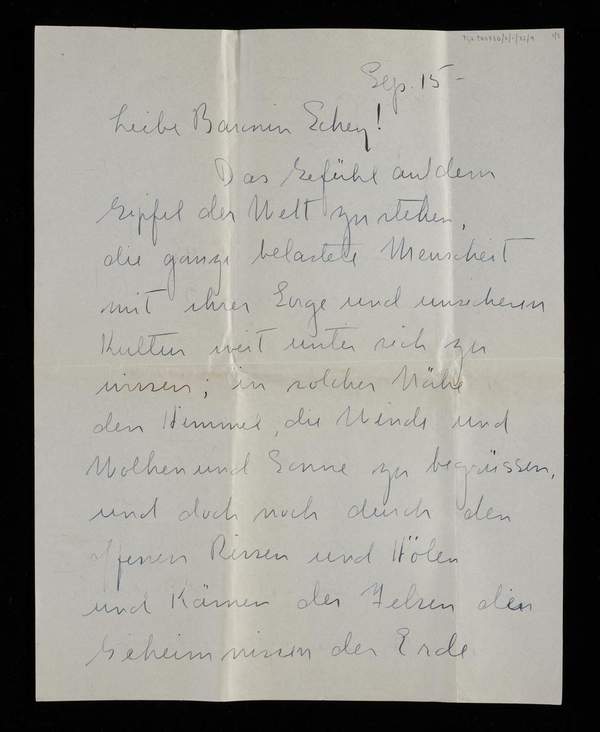 Sep. 15 -
Leibe Baronin Schey!
Das Gefühl auf dem
Gipfel der Welt zu stehen,
die ganze belastete Menscheit
mit ihrer Enge und unsicheren
Kultur weit unter sich zu
wissen; in solcher Nähe
den Himmel, die Winde und
Wolken und Sonne zu begrüssen,
und doch noch durch den
offenen Rissen und Hölen
und Kämen der Felsen den
Geheimnissen der Erde